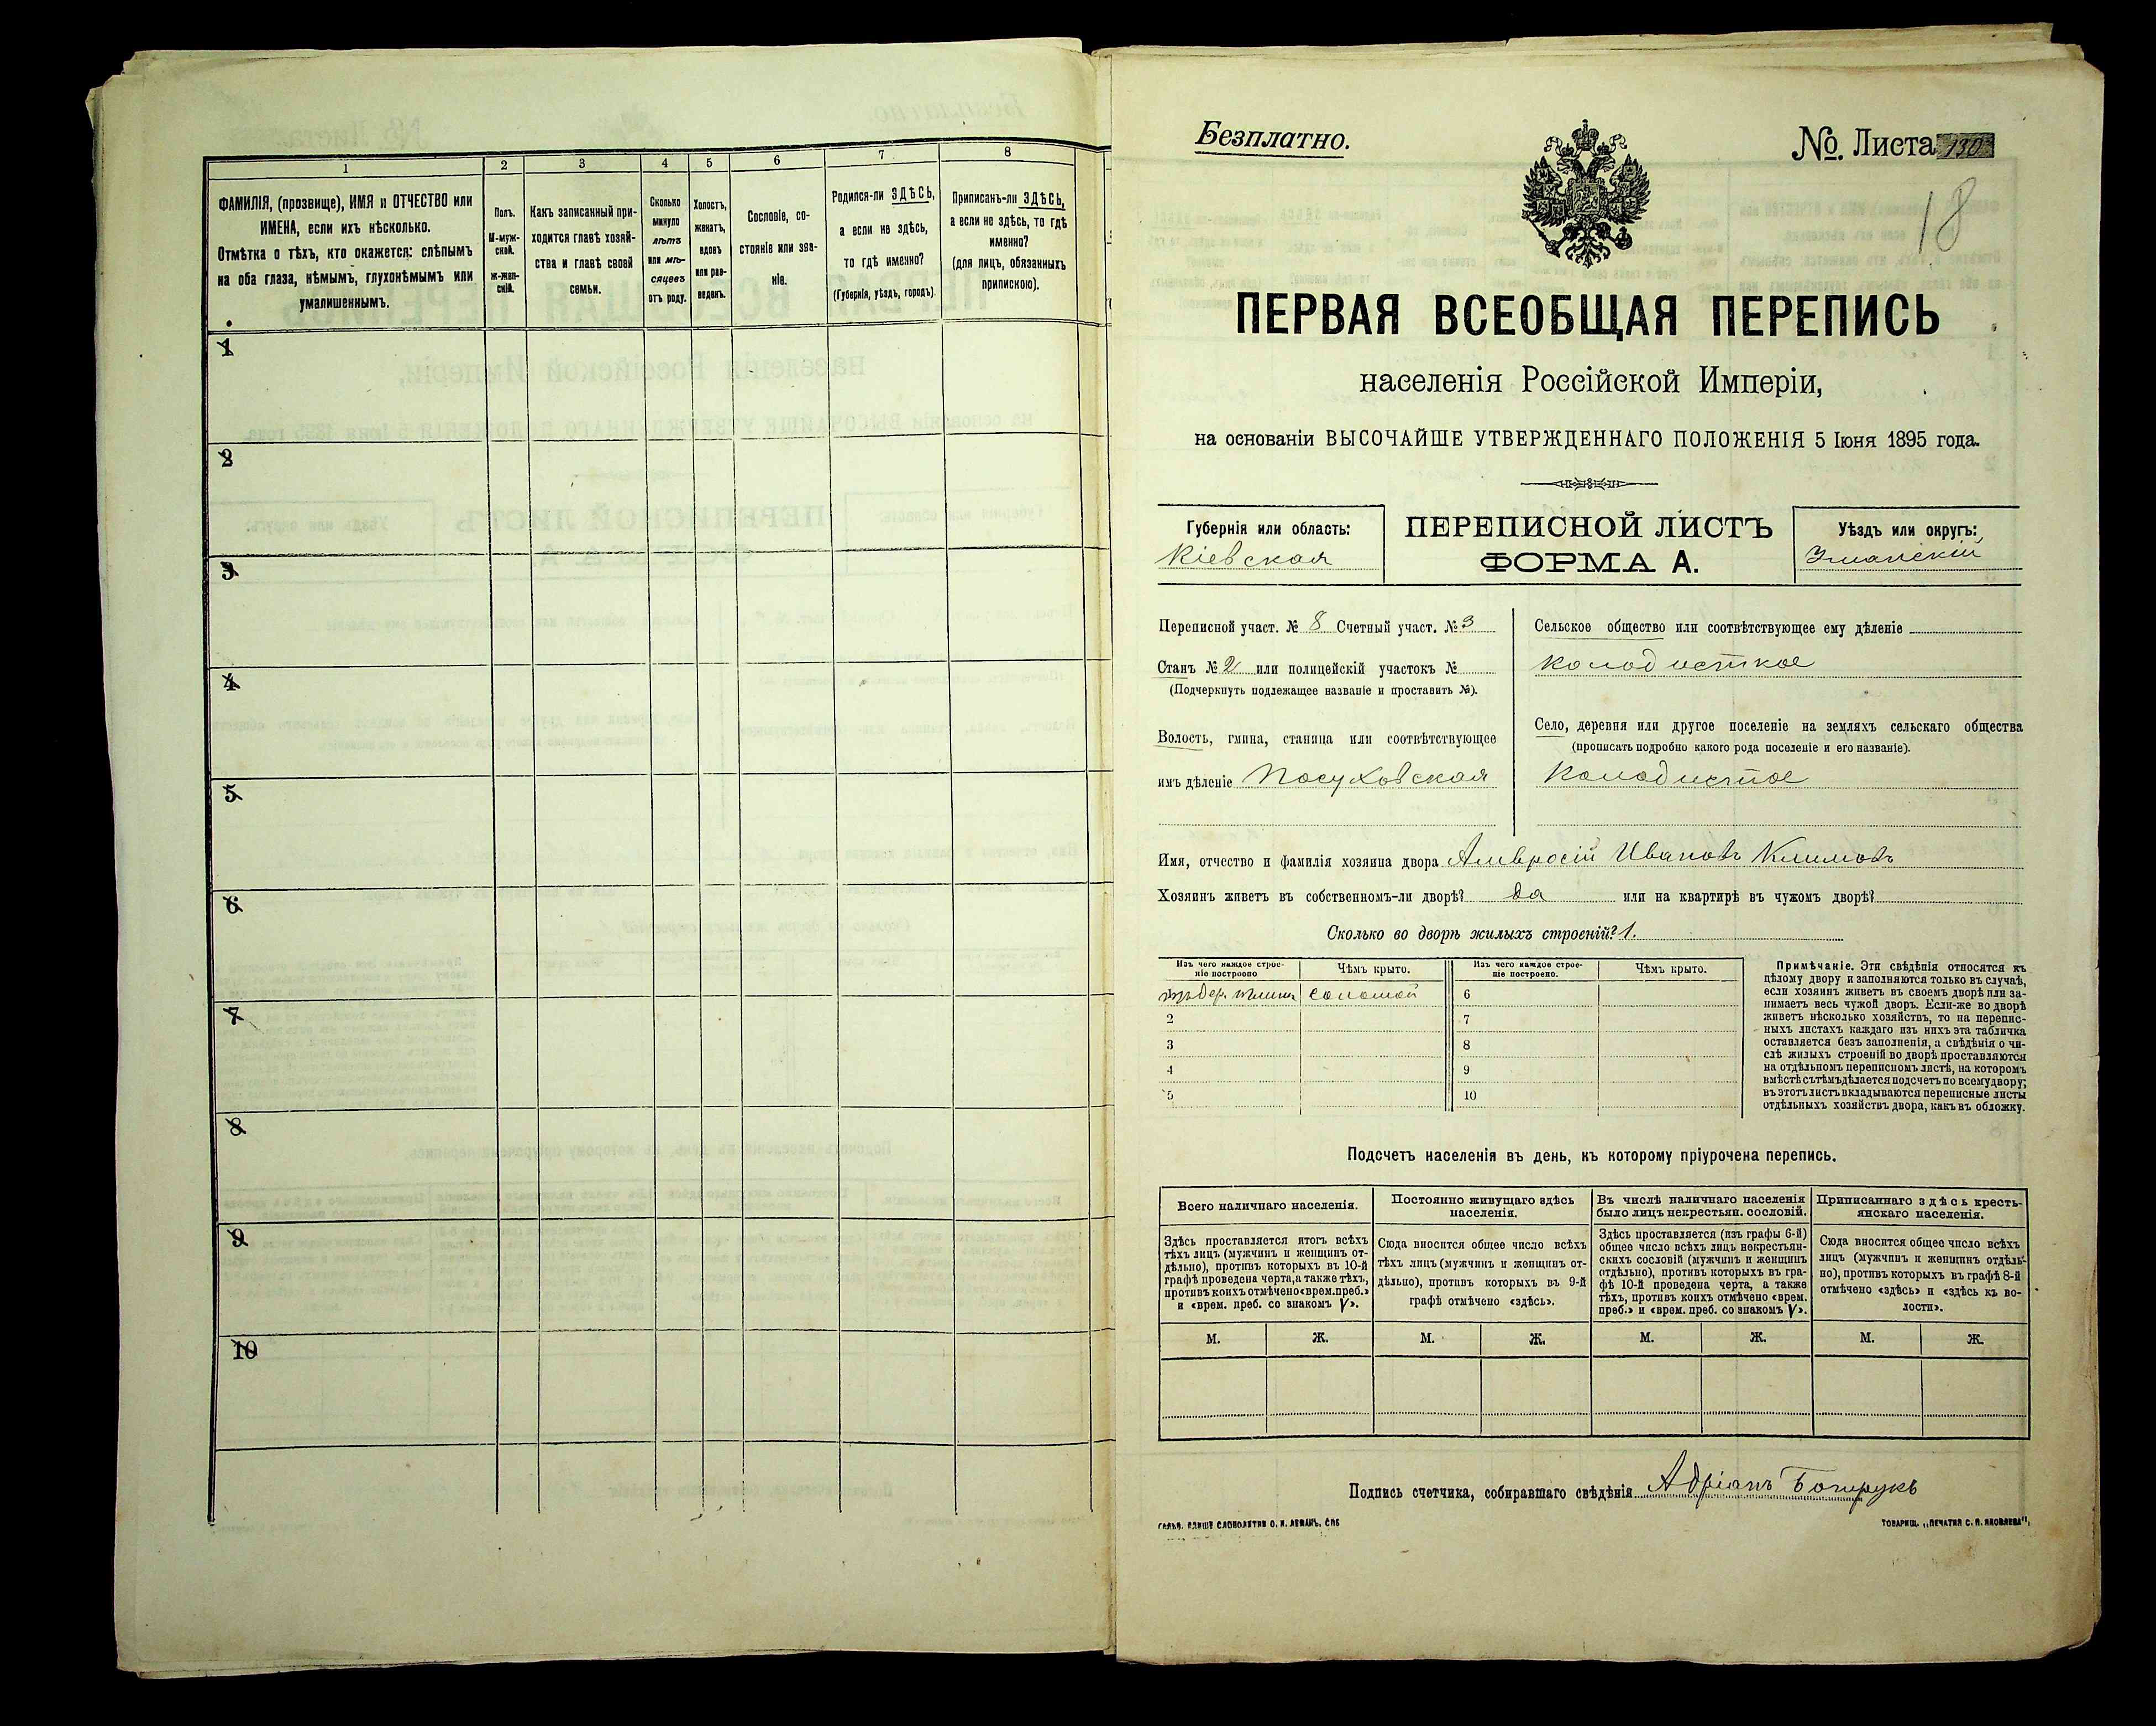 1
2
3
4
5
6
7
8
ФАМИЛІЯ, (прозвище), ИМЯ и ОТЧЕСТВО или
ИМЕНА, если ихъ нѣсколько.
Отмѣтка о тѣхъ, кто окажется: слѣпымъ
на оба глаза, нѣмымъ, глухонѣмымъ или
умалишеннымъ.
Полъ.
М-муж-
ской.
ж-жен-
скій.
Какъ записанный при-
ходится главѣ хозяй-
ства и главѣ своей
семьи.
Сколько
минуло
лѣтъ
или мѣ-
сяцевъ
отъ роду.
Холостъ,
женатъ,
вдовъ
или раз-
веденъ.
Сословіе, со-
стояніе или зва-
ніе.
Родился-ли ЗДѢСЬ,
а если не здѣсь,
то гдѣ именно?
(Губернія, уѣздъ, городъ).
Приписанъ-ли ЗДѢСЬ,
а если не здѣсь, то гдѣ
именно?
(для лицъ, обязанныхъ
припискою).
1
2
3
4
5
6
7
8
9
10
Безплатно.
№. Листа 130
18
ПЕРВАЯ ВСЕОБЩАЯ ПЕРЕПИСЬ
населенія Россійской Имперіи,
на основаніи ВЫСОЧАЙШЕ УТВЕРЖДЕННАГО ПОЛОЖЕНІЯ 5 Іюня 1895 года.
Губернія или область:
Кіевская
ПЕРЕПИСНОЙ ЛИСТЪ
ФОРМА А.
Уѣздъ или округъ:
Уманскій
Переписной участ. № 8 Счетный участ. № 3
Станъ № 2 или полицейскій участокъ №
(Подчеркнуть подлежащее названіе и проставить №).
Волость, гмина, станица или соотвѣтствующее
имъ дѣленіе Посуховская
Сельское общество или соотвѣтствующее ему дѣленіе
Колодисткое
Село, деревня или другое поселеніе на земляхъ сельскаго общества
(прописать подробно какого рода поселеніе и его названіе).
Колодистое
Имя, отчество и фамилія хозяина двора Амвросій Ивановъ Климовъ
Хозяинъ живетъ въ собственномъ-ли дворѣ? да или на квартирѣ въ чужомъ дворѣ?
Сколько во дворѣ жилыхъ строеній? 1.
Изъ чего каждое строе-
ніе построено
Чѣмъ крыто.
Изъ чего каждое строе-
ніе построено.
Чѣмъ крыто.
соломой
6
2
7
3
8
4
9
5
10
Примѣчаніе. Эти свѣдѣнія относятся къ
цѣлому двору и заполняются только въ случаѣ,
если хозяинъ живетъ въ своемъ дворѣ или за-
нимаетъ весь чужой дворъ. Если-же во дворѣ
живетъ нѣсколько хозяйствъ, то на перепис-
ныхъ листахъ каждаго изъ нихъ эта табличка
оставляется безъ заполненія, а свѣдѣнія о чи-
слѣ жилыхъ строеній во дворѣ проставляются
на отдѣльномъ переписномъ листѣ, на которомъ
вмѣстѣ съ тѣмъ дѣлается подсчетъ по всему двору;
въ этотъ листъ вкладываются переписные листы
отдѣльныхъ хозяйствъ двора, какъ въ обложку.
Подсчетъ населенія въ день, къ которому пріурочена перепись.
Всего наличнаго населенія.
Постоянно живущаго здѣсь
населенія.
Въ числѣ наличнаго населенія
было лицъ некрестьян. сословій.
Приписаннаго здѣсь кресть-
янскаго населенія.
Здѣсь проставляется итогъ всѣхъ
тѣхъ лицъ (мужчинъ и женщинъ от-
дѣльно), противъ которыхъ въ 10-й
графѣ проведена черта, а также тѣхъ,
противъ коихъ отмѣчено «врем. преб.»
и «врем. преб. со знакомъ V».
Сюда вносится общее число всѣхъ
тѣхъ лицъ (мужчинъ и женщинъ от-
дѣльно), противъ которыхъ въ 9-й
графѣ отмѣчено «здѣсь».
Здѣсь проставляется (изъ графы 6-й)
общее число всѣхъ лицъ некрестьян-
скихъ сословій (мужчинъ и женщинъ
отдѣльно), противъ которыхъ въ гра-
фѣ 10-й проведена черта, а также
тѣхъ, противъ коихъ отмѣчено «врем.
преб.» и «врем. преб. со знакомъ V».
Сюда вносится общее число всѣхъ
лицъ (мужчинъ и женщинъ отдѣль-
но), противъ которыхъ въ графѣ 8-й
отмѣчено «здѣсь» и «здѣсь къ во-
лости».
М.
Ж.
М.
Ж.
М.
Ж.
М.
Ж.
Подпись счетчика, собиравшаго свѣдѣнія Адріанъ
ТОВАРИЩ. „ПЕЧАТНЯ С. П. ЯКОВЛЕВА"